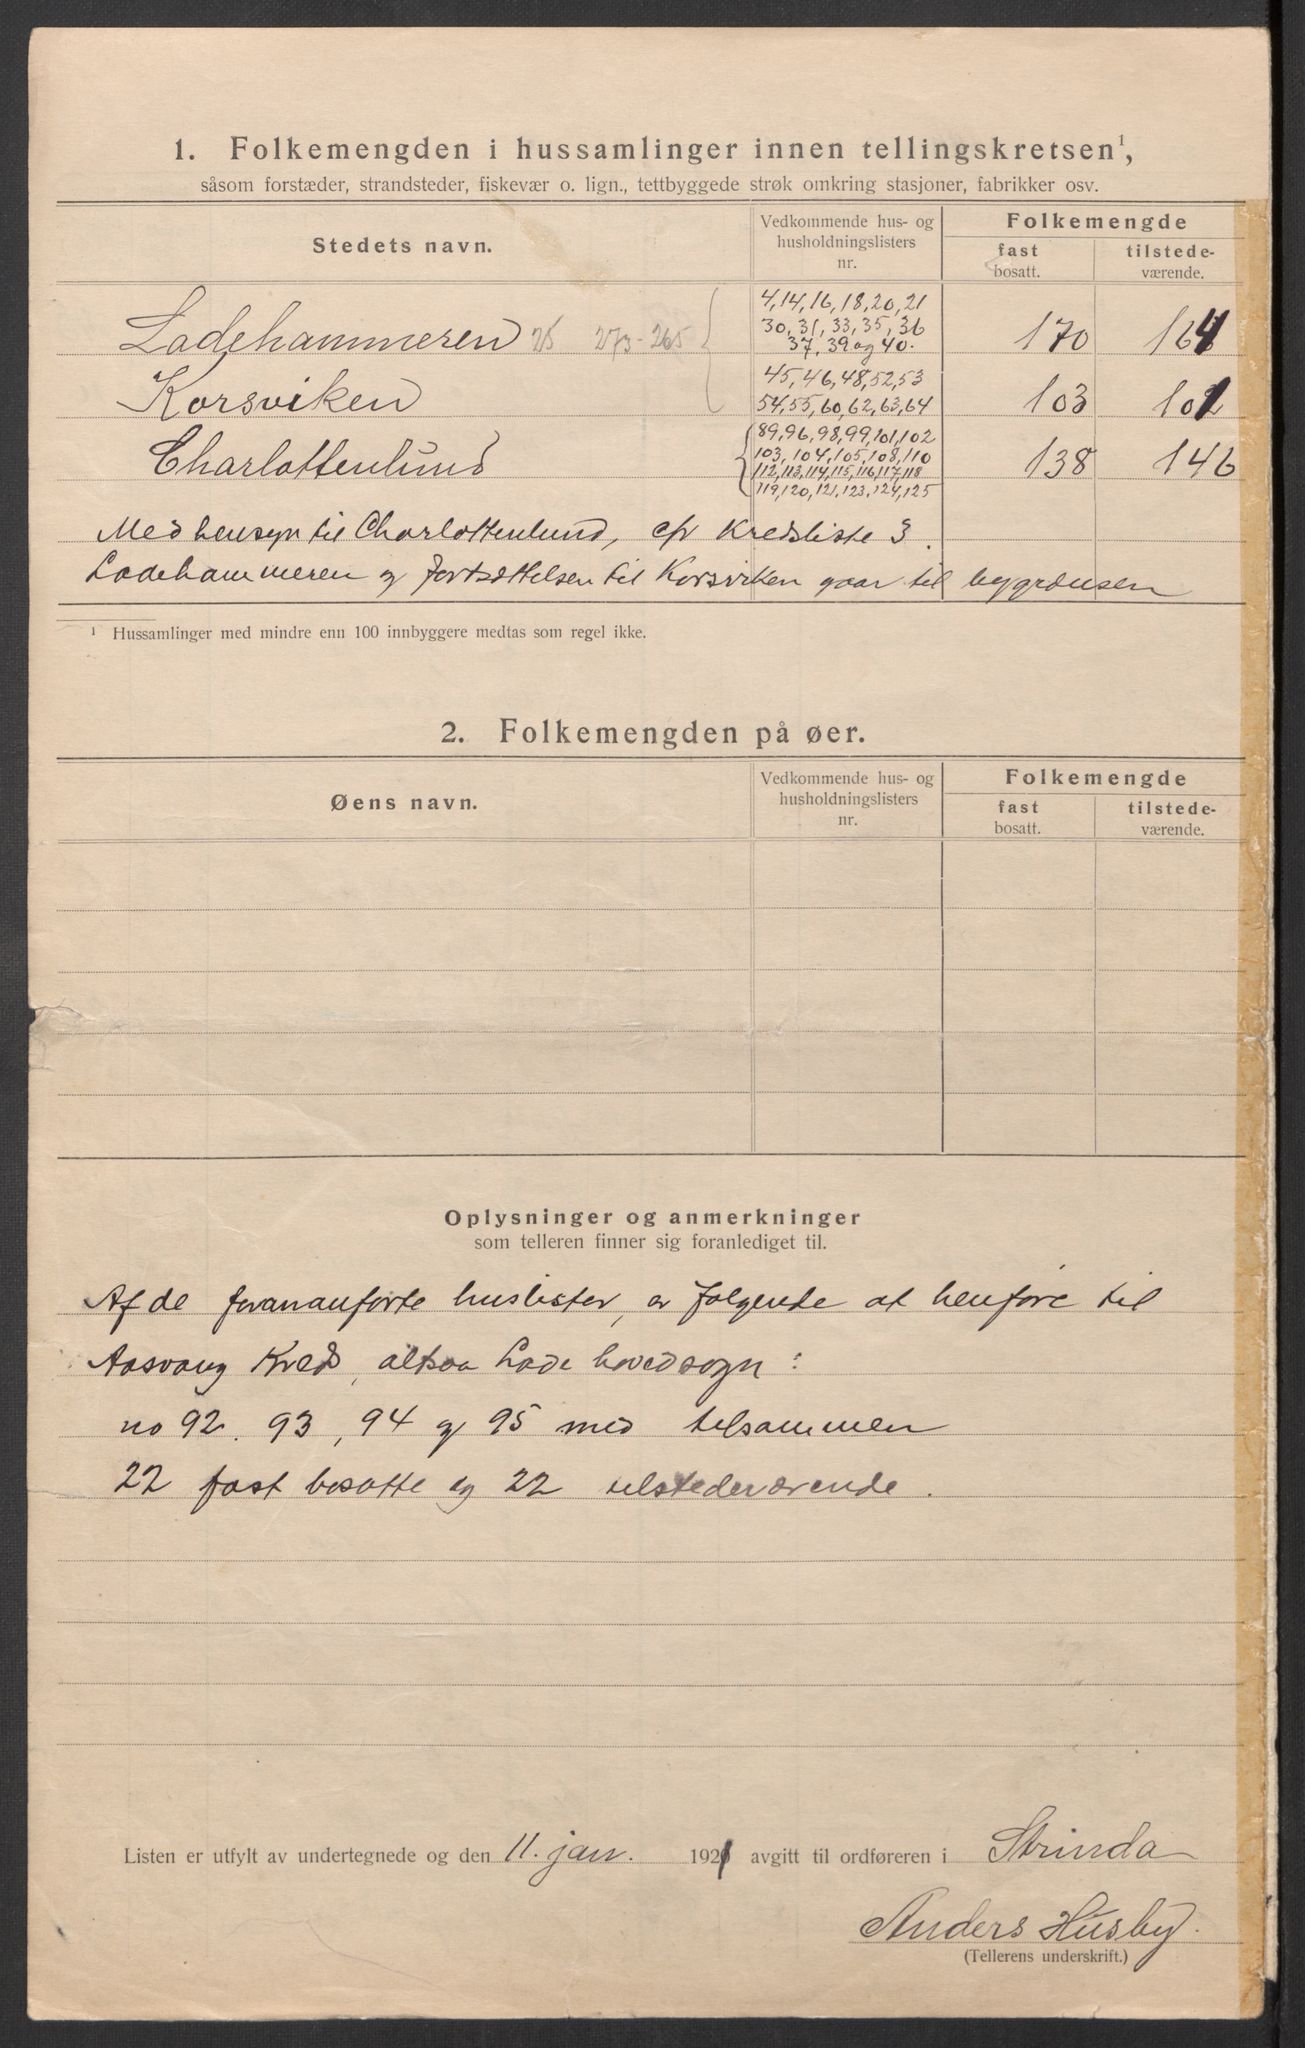 1. Folkemengden i hussamlinger innen tellingskretsen¹,
såsom forstæder, strandsteder, fiskevær o. lign., tettbyggede strøk omkring stasjoner, fabrikker osv.
Stedets navn. Vedkommende hus- og husholdningslisters nr. Folkemengde
fast bosatt. tilstede-værende.
4, 14, 16, 18, 20, 21
30, 31, 33, 35, 36
Ladehammeren 25 273-265 37, 39 og 40. 170 164
45, 46, 48, 52, 53
Korsviken 54, 55, 60, 62, 63, 64 103 101
89, 96, 98, 99, 101, 102
Charlottenlund 103, 104, 105, 108, 110 138 146
112, 113, 114, 115, 116, 117, 118
119, 120, 121, 123, 124, 125
Med hensyn til Charlottenlund, cfr Kredsliste 3.
Ladehammeren og fortsættelsen til Korsviken gaar til bygrænsen
¹ Hussamlinger med mindre enn 100 innbyggere medtas som regel ikke.
2. Folkemengden på øer.
Øens navn. Vedkommende hus- og husholdningslisters nr. Folkemengde
fast bosatt. tilstede-værende.
Oplysninger og anmerkninger
som telleren finner sig foranlediget til.
Af de forananførte huslister, er følgende at henføre til
Aasvang Kreds, altsaa Lade hovedsogn:
no 92. 93, 94 og 95 med tilsammen
22 fast bosatte og 22 tilstedeværende.
Listen er utfylt av undertegnede og den 11. jan. 1921 avgitt til ordføreren i Strinda
Anders Husby.
(Tellerens underskrift.)